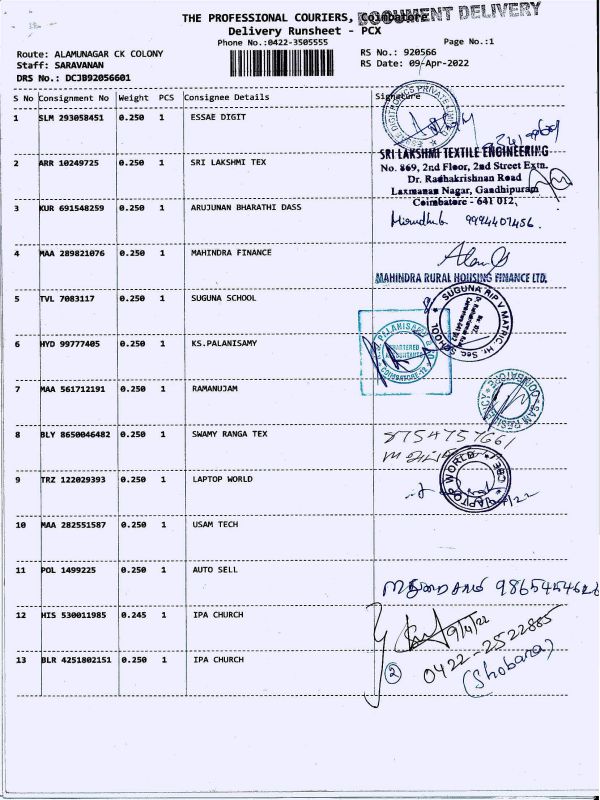 THE PROFESSIONAL COURIERS, Coimbatore
DOCUMENT DELIVERY
Delivery Runsheet - PCX
Phone No.:0422-3505555
Page No.:1
Route: ALAMUNAGAR CK COLONY
RS No.: 920566
Staff: SARAVANAN
RS Date: 09-Apr-2022
DRS No.: DCJB92056601
S No Consignment No Weight PCS Consignee Details Signature
1 SLM 293058451 0.250 1 ESSAE DIGIT
2 ARR 10249725 0.250 1 SRI LAKSHMI TEX
SRI LAKSHMI TEXTILE ENGINEERING
No. 869, 2nd Floor, 2nd Street Extn.
Dr. Radhakrishnan Road
Laxmanan Nagar, Gandhipuram
Coimbatore - 641 012,
3 KUR 691548259 0.250 1 ARUJUNAN BHARATHI DASS
9994407456.
4 MAA 289821076 0.250 1 MAHINDRA FINANCE
MAHINDRA RURAL HOUSING FINANCE LTD.
5 TVL 7083117 0.250 1 SUGUNA SCHOOL
SUGUNA RIP V MATRIC. Hr. Sec. SCHOOL
6 HYD 99777405 0.250 1 KS.PALANISAMY
CHARTERED
ACCOUNTANTS
COIMBATORE-12
7 MAA 561712191 0.250 1 RAMANUJAM
COIMBATORE
8 BLY 8650046482 0.250 1 SWAMY RANGA TEX
8754757661
9 TRZ 122029393 0.250 1 LAPTOP WORLD
LAPTOP WORLD CBE
10 MAA 282551587 0.250 1 USAM TECH
11 POL 1499225 0.250 1 AUTO SELL
12 HIS 530011985 0.245 1 IPA CHURCH
9/4/22
0422-2522885
13 BLR 4251802151 0.250 1 IPA CHURCH
2
(Shobana)